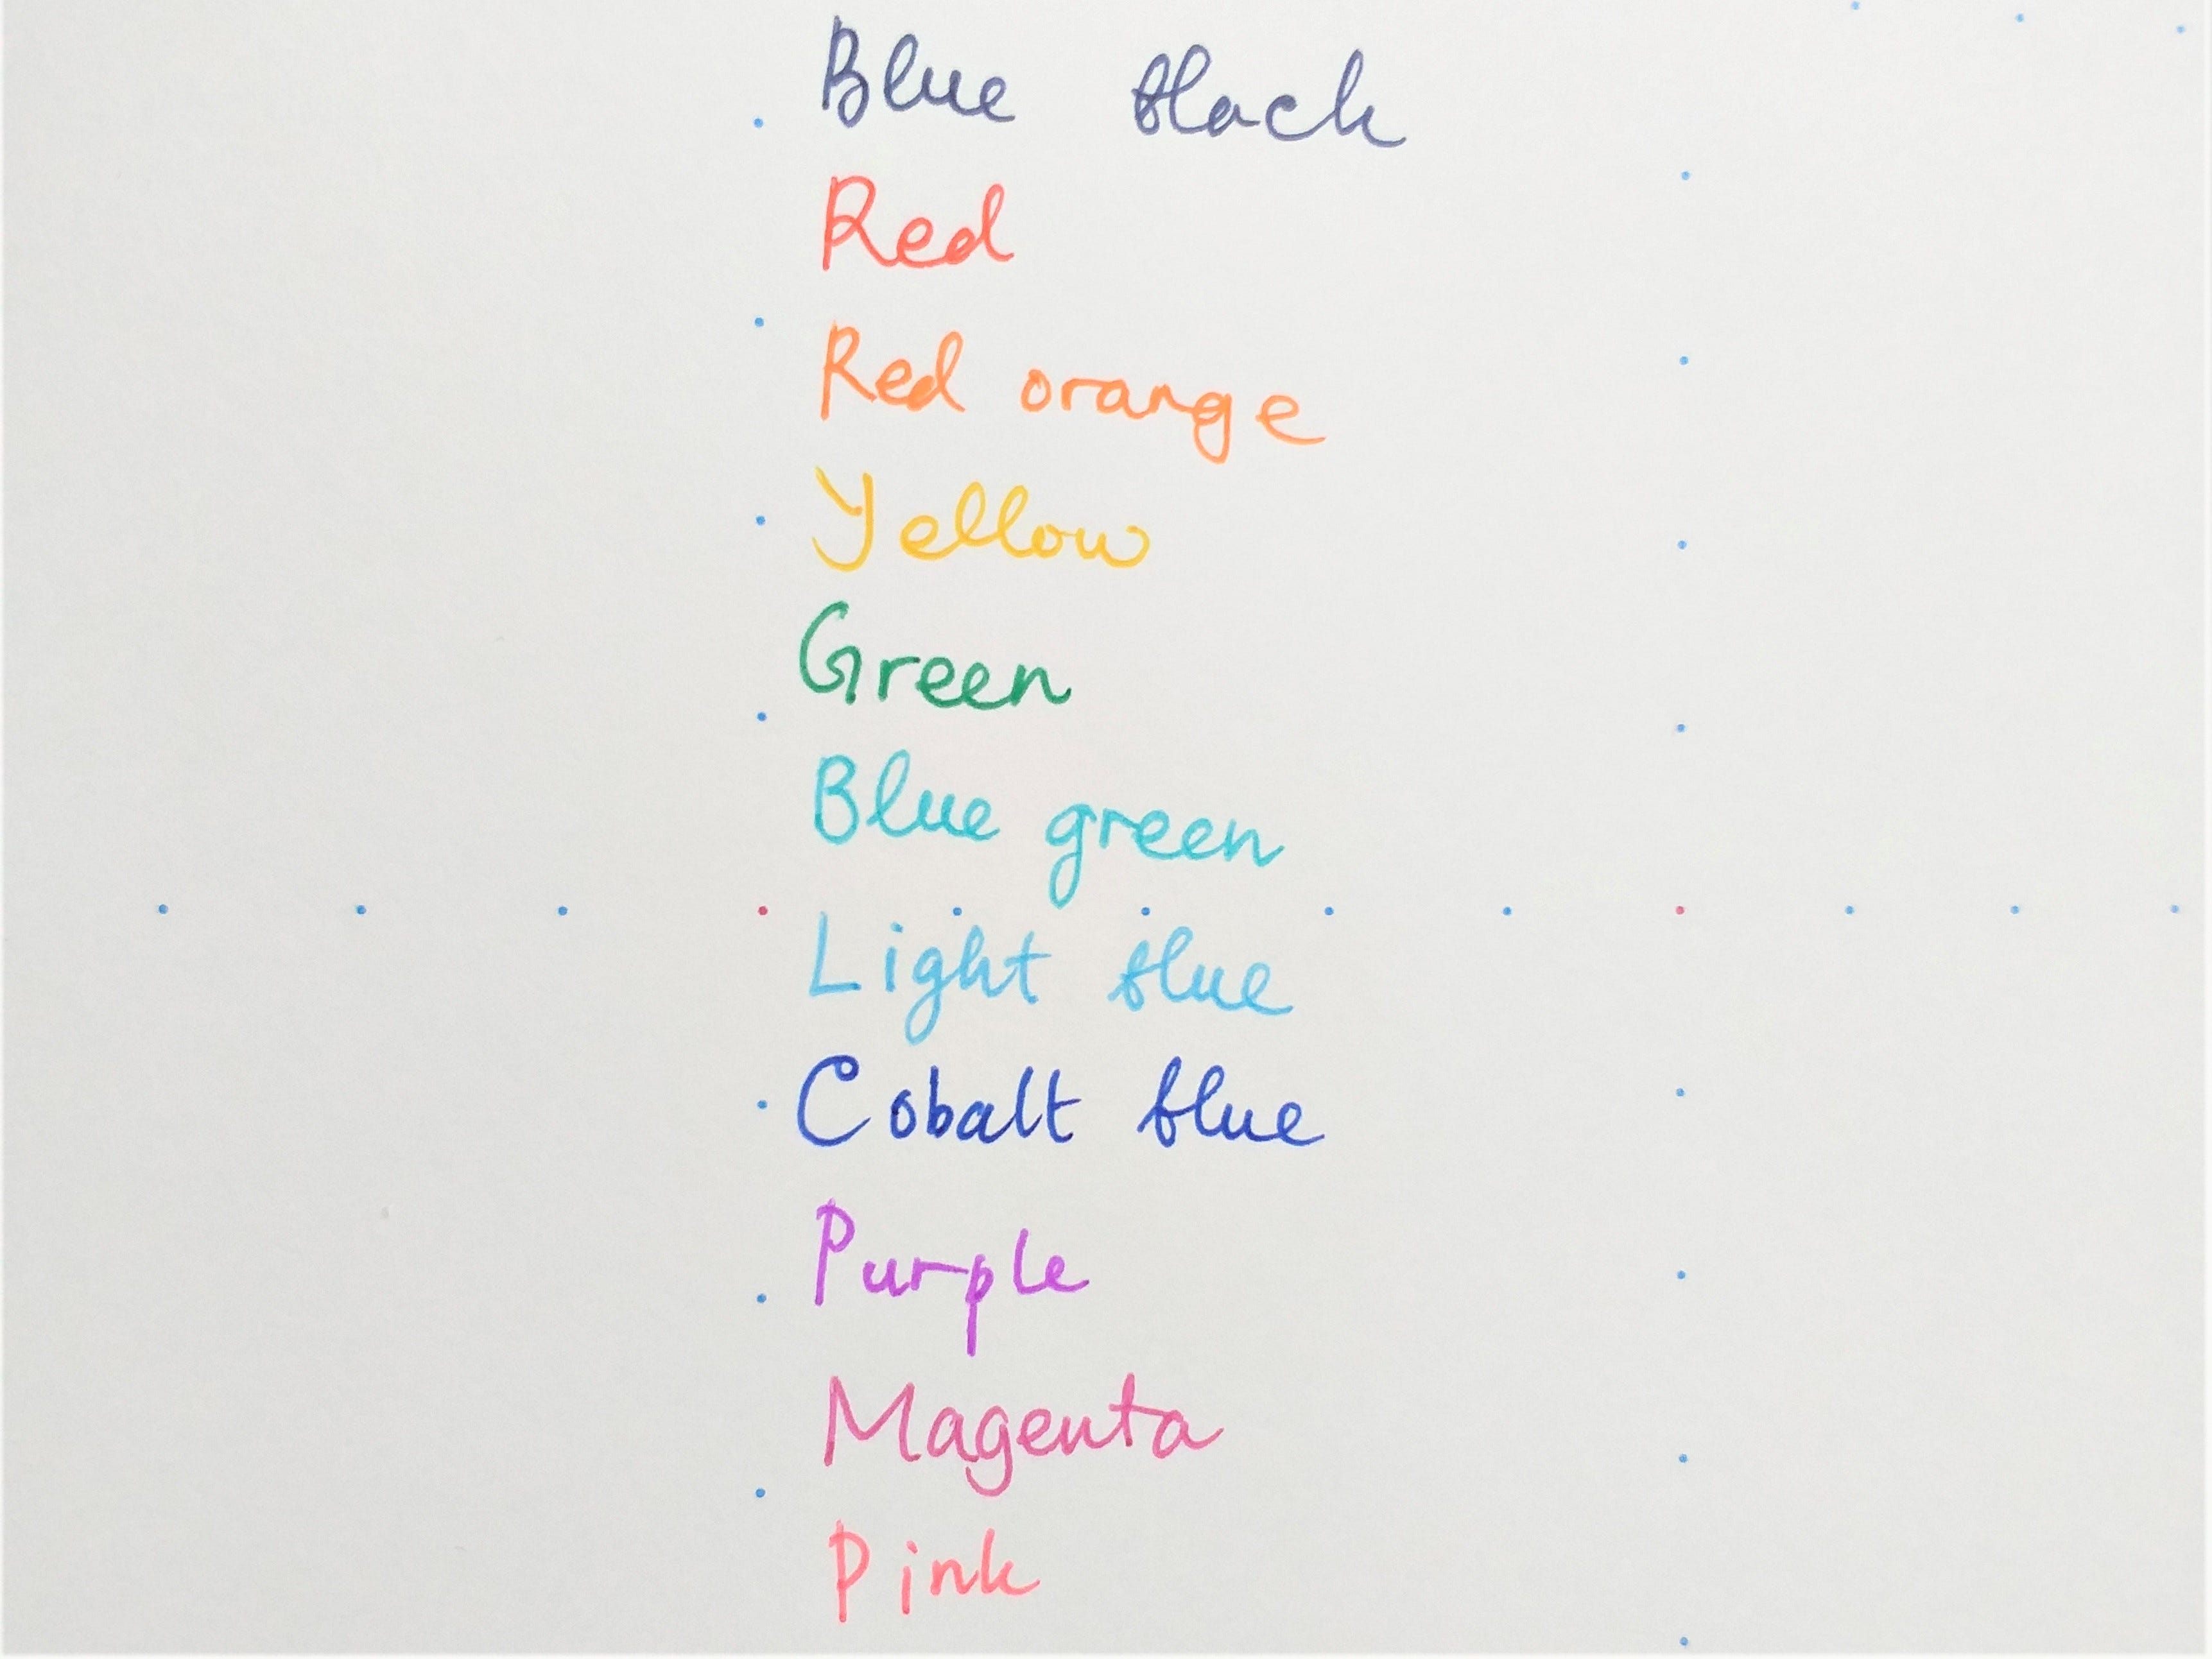 Blue black
Red
Red orange
Yellow
Green
Blue green
Light blue
Cobalt blue
Purple
Magenta
Pink